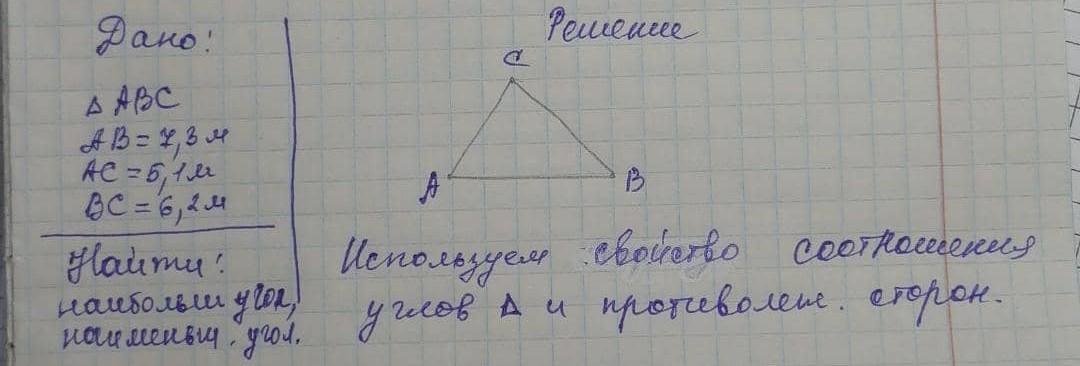 Дано:
Δ ABC
AB = 7,3 м
AC = 5,1 м
BC = 6,2 м
Найти:
наибольш угол,
наименьш. угол.
Решение
C
A
B
Используем свойство соотношения
углов Δ и противолеж. сторон.